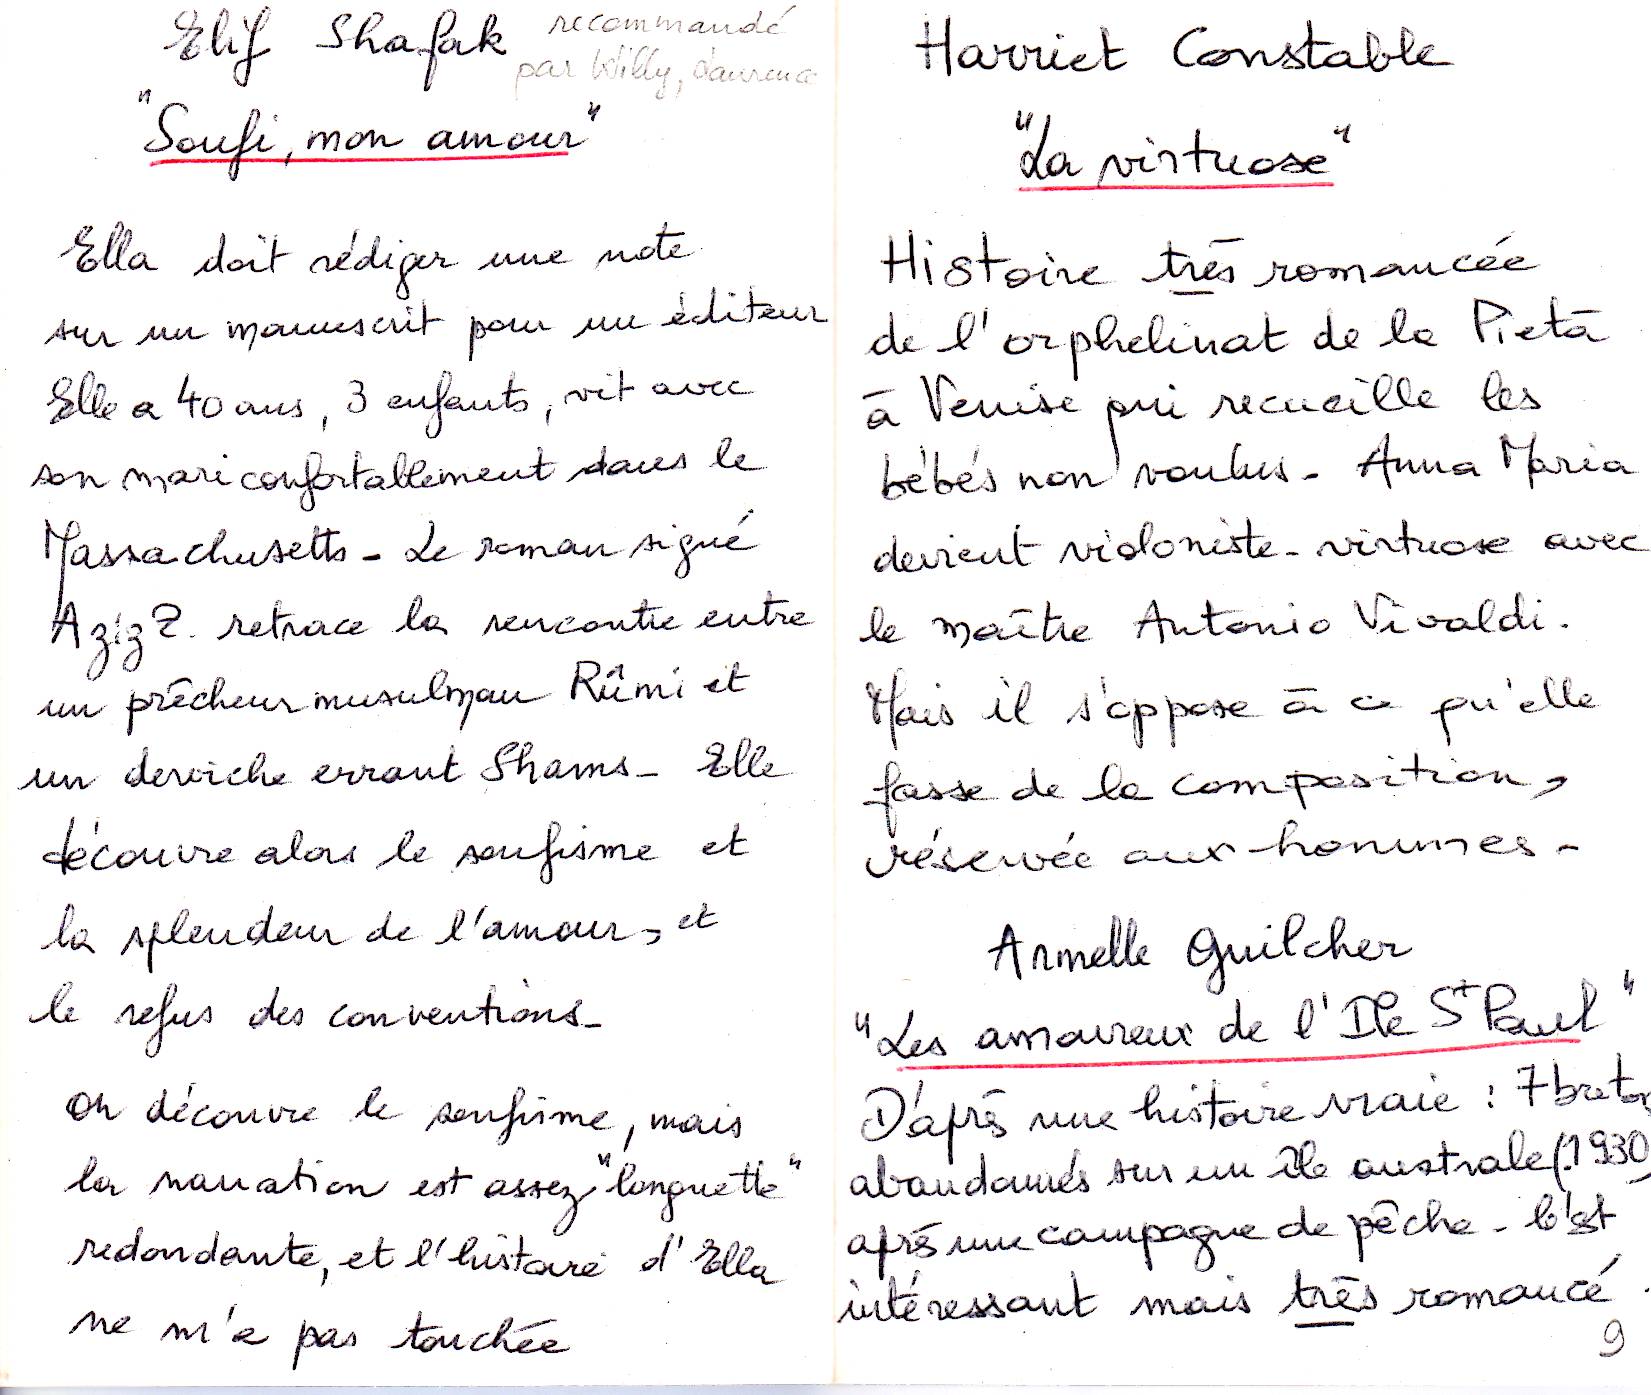 Elif Shafak
recommandé
par Willy, Laurence
"Soufi, mon amour"
Ella doit rédiger une note
sur un manuscrit pour un éditeur
Elle a 40 ans, 3 enfants, vit avec
son mari confortablement dans le
Massachusetts - Le roman signé
Aziz Z. retrace la rencontre entre
un prêcheur musulman Rûmi et
un derviche errant Shams - Elle
découvre alors le soufisme et
la splendeur de l'amour, et
le refus des conventions -
On découvre le soufisme, mais
la narration est assez "longuette"
redondante, et l'histoire d'Ella
ne m'a pas touchée
Harriet Constable
"La virtuose"
Histoire très romancée
de l'orphelinat de la Pietà
à Venise qui recueille les
bébés non voulus - Anna Maria
devient violoniste - virtuose avec
le maître Antonio Vivaldi.
Mais il s'oppose à ce qu'elle
fasse de la composition,
réservée aux hommes -
Armelle Guilcher
"Les amoureux de l'Ile St Paul"
D'après une histoire vraie : 7 bretons
abandonnés sur un île australe (1930)
après une campagne de pêche - C'est
intéressant mais très romancé.
9